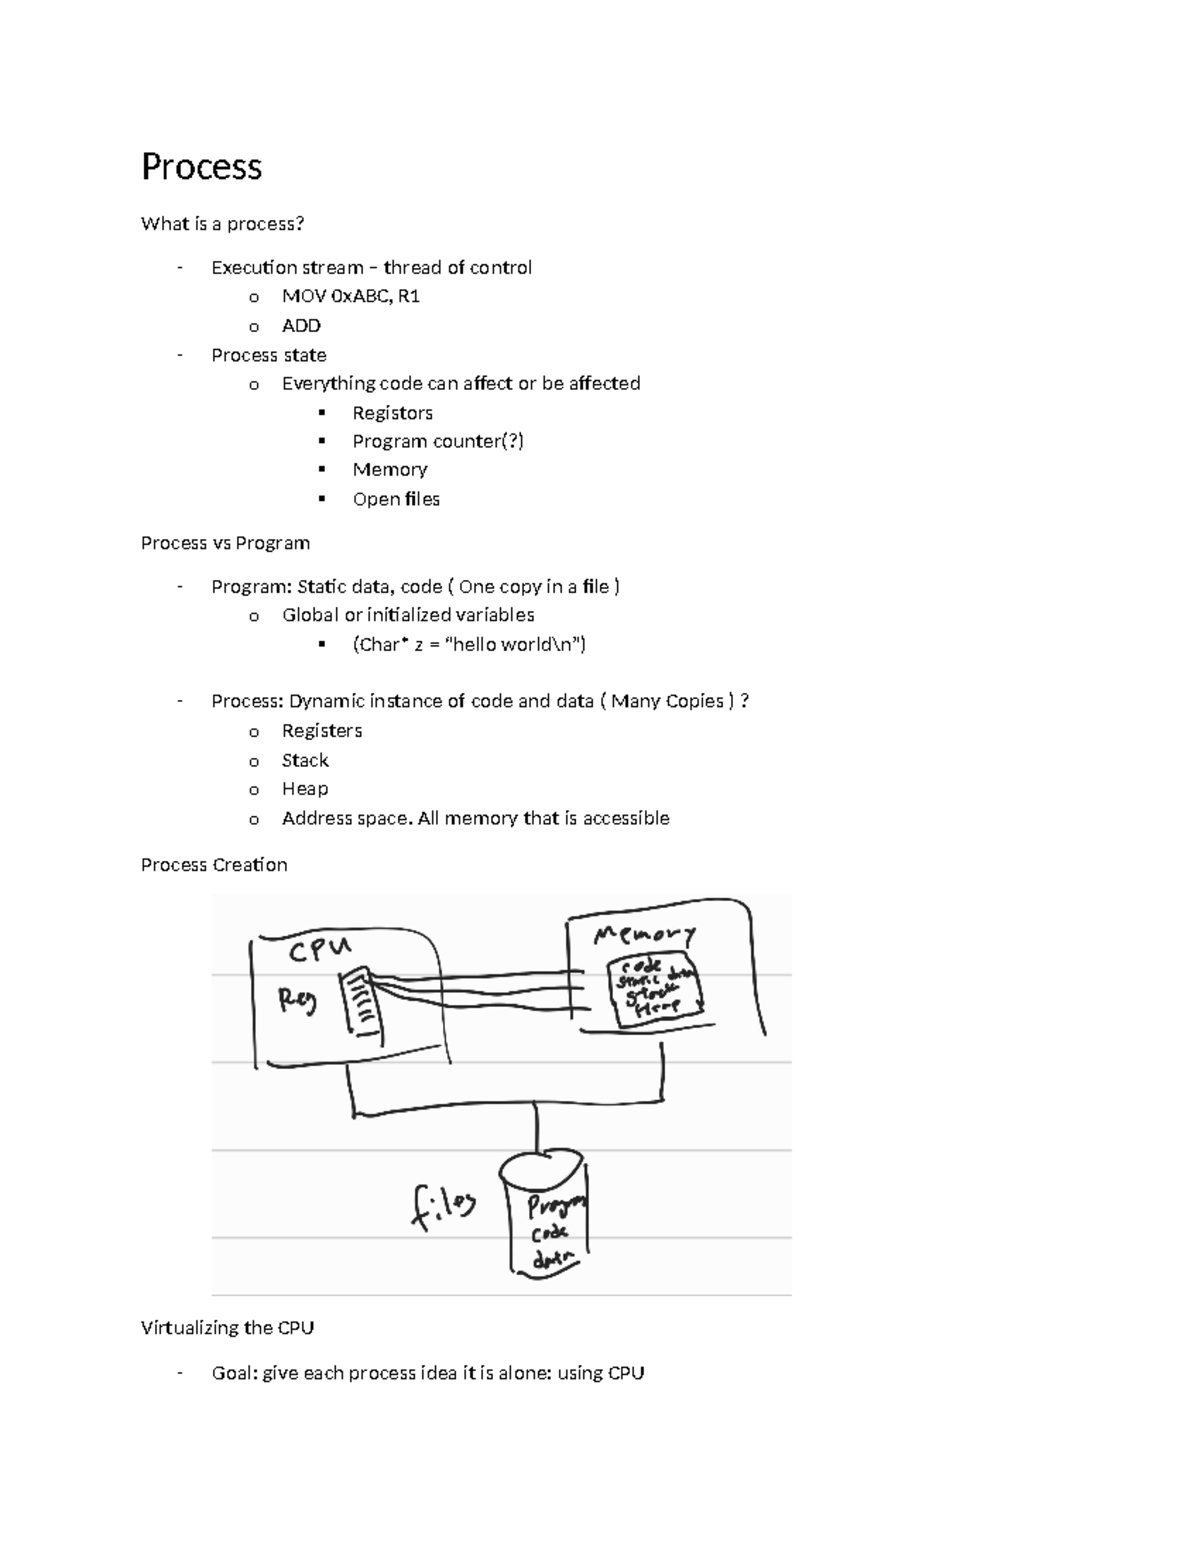 Process
What is a process?
- Execution stream – thread of control
o MOV 0xABC, R1
o ADD
- Process state
o Everything code can affect or be affected
▪ Registors
▪ Program counter(?)
▪ Memory
▪ Open files
Process vs Program
- Program: Static data, code ( One copy in a file )
o Global or initialized variables
▪ (Char* z = “hello world\n”)
- Process: Dynamic instance of code and data ( Many Copies ) ?
o Registers
o Stack
o Heap
o Address space. All memory that is accessible
Process Creation
CPU
Reg
Memory
code
static data
stack
Heap
files
Progrm
code
data
Virtualizing the CPU
- Goal: give each process idea it is alone: using CPU